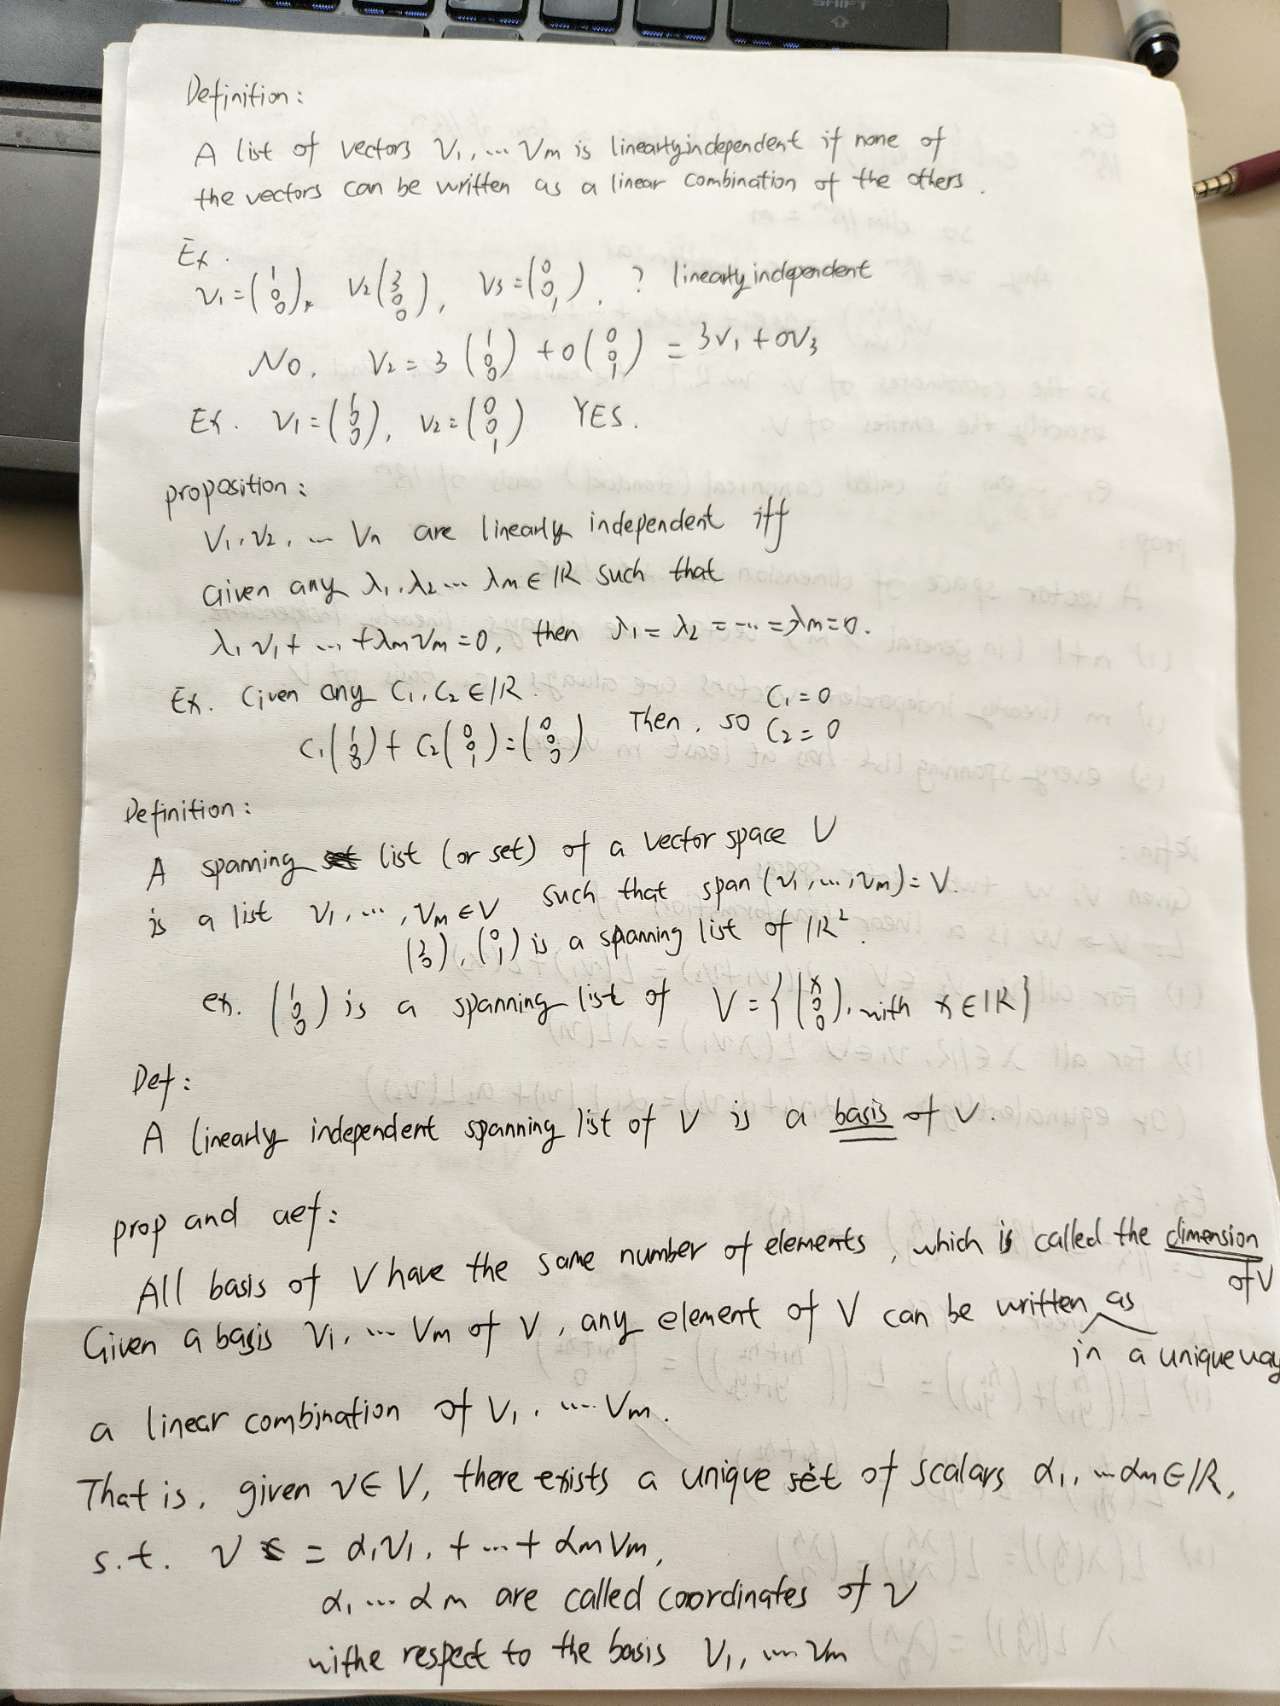 SHIFT
Definition:
A list of vectors v₁, ... vm is linearly independent if none of
the vectors can be written as a linear combination of the others.
Ex.
v₁ = (1 0 0), v₂ (3 0 0), v₃ = (0 0 1), ? linearly independent
No. v₂ = 3 (1 0 0) + 0 (0 0 1) = 3v₁ + 0v₃
Ex. v₁ = (1 0 0), v₂ = (0 0 1) YES.
proposition:
v₁, v₂, ... vn are linearly independent iff
Given any λ₁, λ₂ ... λm ∈ ℝ such that
λ₁v₁ + ... + λmvm = 0, then λ₁ = λ₂ = ... = λm = 0.
Ex. Given any C₁, C₂ ∈ ℝ.
C₁ (1 0 0) + C₂ (0 0 1) = (0 0 0) Then, so C₁ = 0 C₂ = 0
Definition:
A spanning list (or set) of a vector space V
is a list v₁, ..., vm ∈ V such that span (v₁, ..., vm) = V.
(1 0), (0 1) is a spanning list of ℝ².
ex. (1 0 0) is a spanning list of V = {(x 0 0), with x ∈ ℝ}
Def:
A linearly independent spanning list of V is a basis of V.
prop and def:
All basis of V have the same number of elements, which is called the dimension
of V
Given a basis v₁, ... vm of V, any element of V can be written as
in a unique way
a linear combination of v₁, ... vm.
That is, given v ∈ V, there exists a unique set of scalars α₁, ... αm ∈ ℝ,
s.t. v = α₁v₁, + ... + αmvm,
α₁ ... αm are called coordinates of v
withe respect to the basis v₁, ... vm